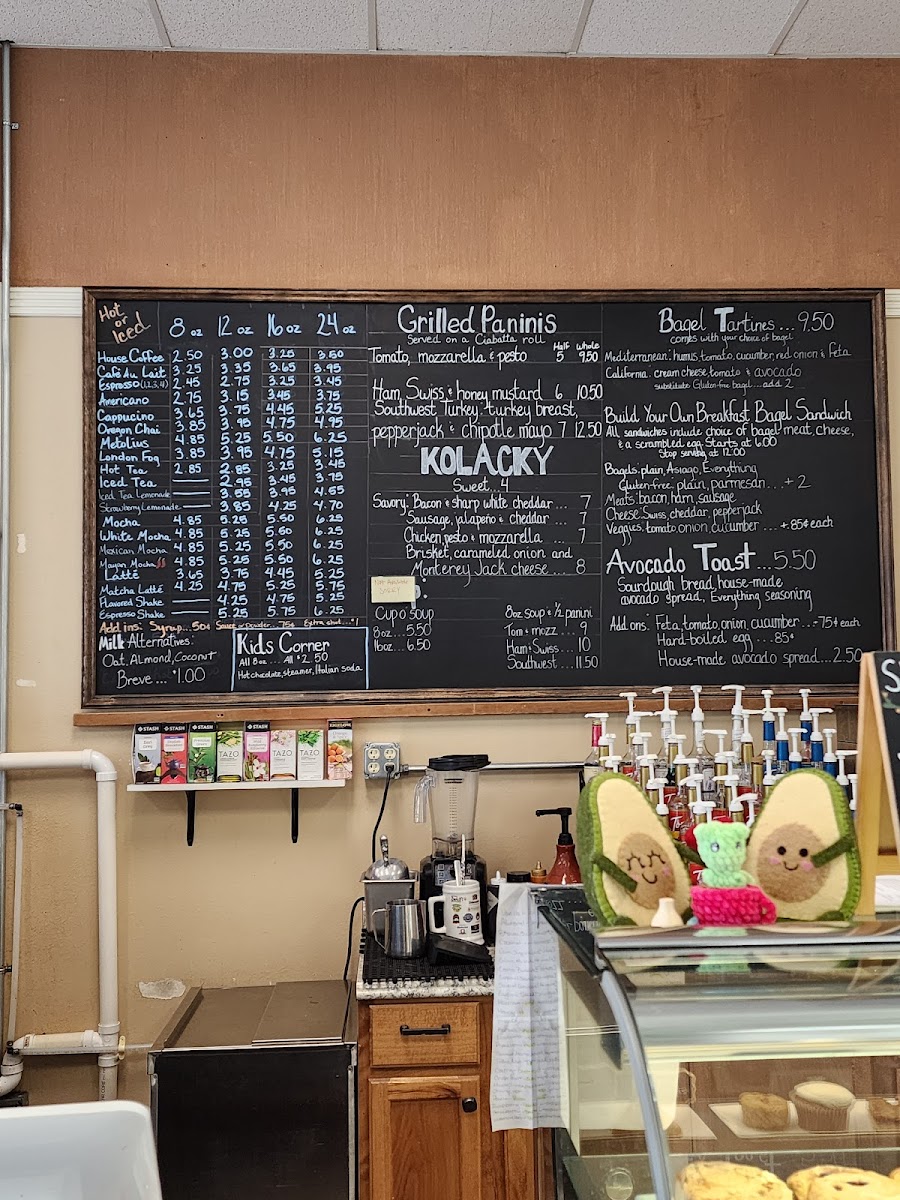 Hot
or
Iced
8 oz 12 oz 16 oz 24 oz
House Coffee 2.50 3.00 3.25 3.50
Café au Lait 3.25 3.35 3.65 3.95
Espresso (1,2,3,4) 2.45 2.75 3.25 3.45
Americano 2.75 3.15 3.45 3.75
Cappucino 3.65 3.75 4.45 5.25
Oregon Chai 3.85 3.95 4.75 4.95
Metolius 4.85 5.25 5.50 6.25
London Fog 3.85 3.95 4.75 5.15
Hot Tea 2.85 2.85 3.25 3.45
Iced Tea — 2.95 3.45 3.75
Iced Tea Lemonade — 3.55 3.95 4.55
Strawberry Lemonade — 3.85 4.25 4.70
Mocha 4.85 5.25 5.50 6.25
White Mocha 4.85 5.25 5.50 6.25
Mexican Mocha 4.85 5.25 5.50 6.25
Mayan Mocha 4.85 5.25 5.50 6.25
Latté 3.65 3.75 4.45 5.25
Matcha Latté 4.25 4.75 5.25 5.75
Flavored Shake — 4.25 4.75 5.25
Espresso Shake — 5.25 5.75 6.25
Add ins: Syrup...50¢ Sauce or Powder...75¢ Extra shot...$1
Milk Alternatives:
Oat, Almond, Coconut
Breve ... $1.00
Kids Corner
All 8 oz ... All $2.50
Hot chocolate, steamer, Italian soda
Grilled Paninis
Served on a Ciabatta roll
Half Whole
Tomato, mozzarella & pesto 5 9.50
Ham, Swiss & honey mustard 6 10.50
Southwest Turkey: turkey breast,
pepperjack & chipotle mayo 7 12.50
KOLACKY
Sweet...4
Savory: Bacon & sharp white cheddar ... 7
Sausage, jalapeño & cheddar ... 7
Chicken, pesto & mozzarella ... 7
Brisket, carameled onion and
Monterey Jack cheese ... 8
Cup o' soup
8oz...5.50
16oz...6.50
8oz soup & ½ panini
Tom & mozz ... 9
Ham & Swiss ... 10
Southwest ... 11.50
Bagel Tartines ... 9.50
comes with your choice of bagel
Mediterranean: humus, tomato, cucumber, red onion & feta
California: cream cheese, tomato & avocado
substitute Gluten-free bagel...add 2
Build Your Own Breakfast Bagel Sandwich
All sandwiches include choice of bagel, meat, cheese,
& a scrambled egg. Starts at 6.00
Stop serving at 12:00
Bagels: plain, Asiago, Everything
Gluten-free: plain, parmesan...+2
Meats: bacon, ham, sausage
Cheese: Swiss, cheddar, pepperjack
Veggies: tomato onion cucumber ... +.85¢ each
Avocado Toast ... 5.50
Sourdough bread, house-made
avocado spread, Everything seasoning
Add ons: Feta, tomato, onion, cucumber...75¢ each
Hard-boiled egg ... .85¢
House-made avocado spread...2.50
STASH STASH STASH STASH
TAZO TAZO TAZO